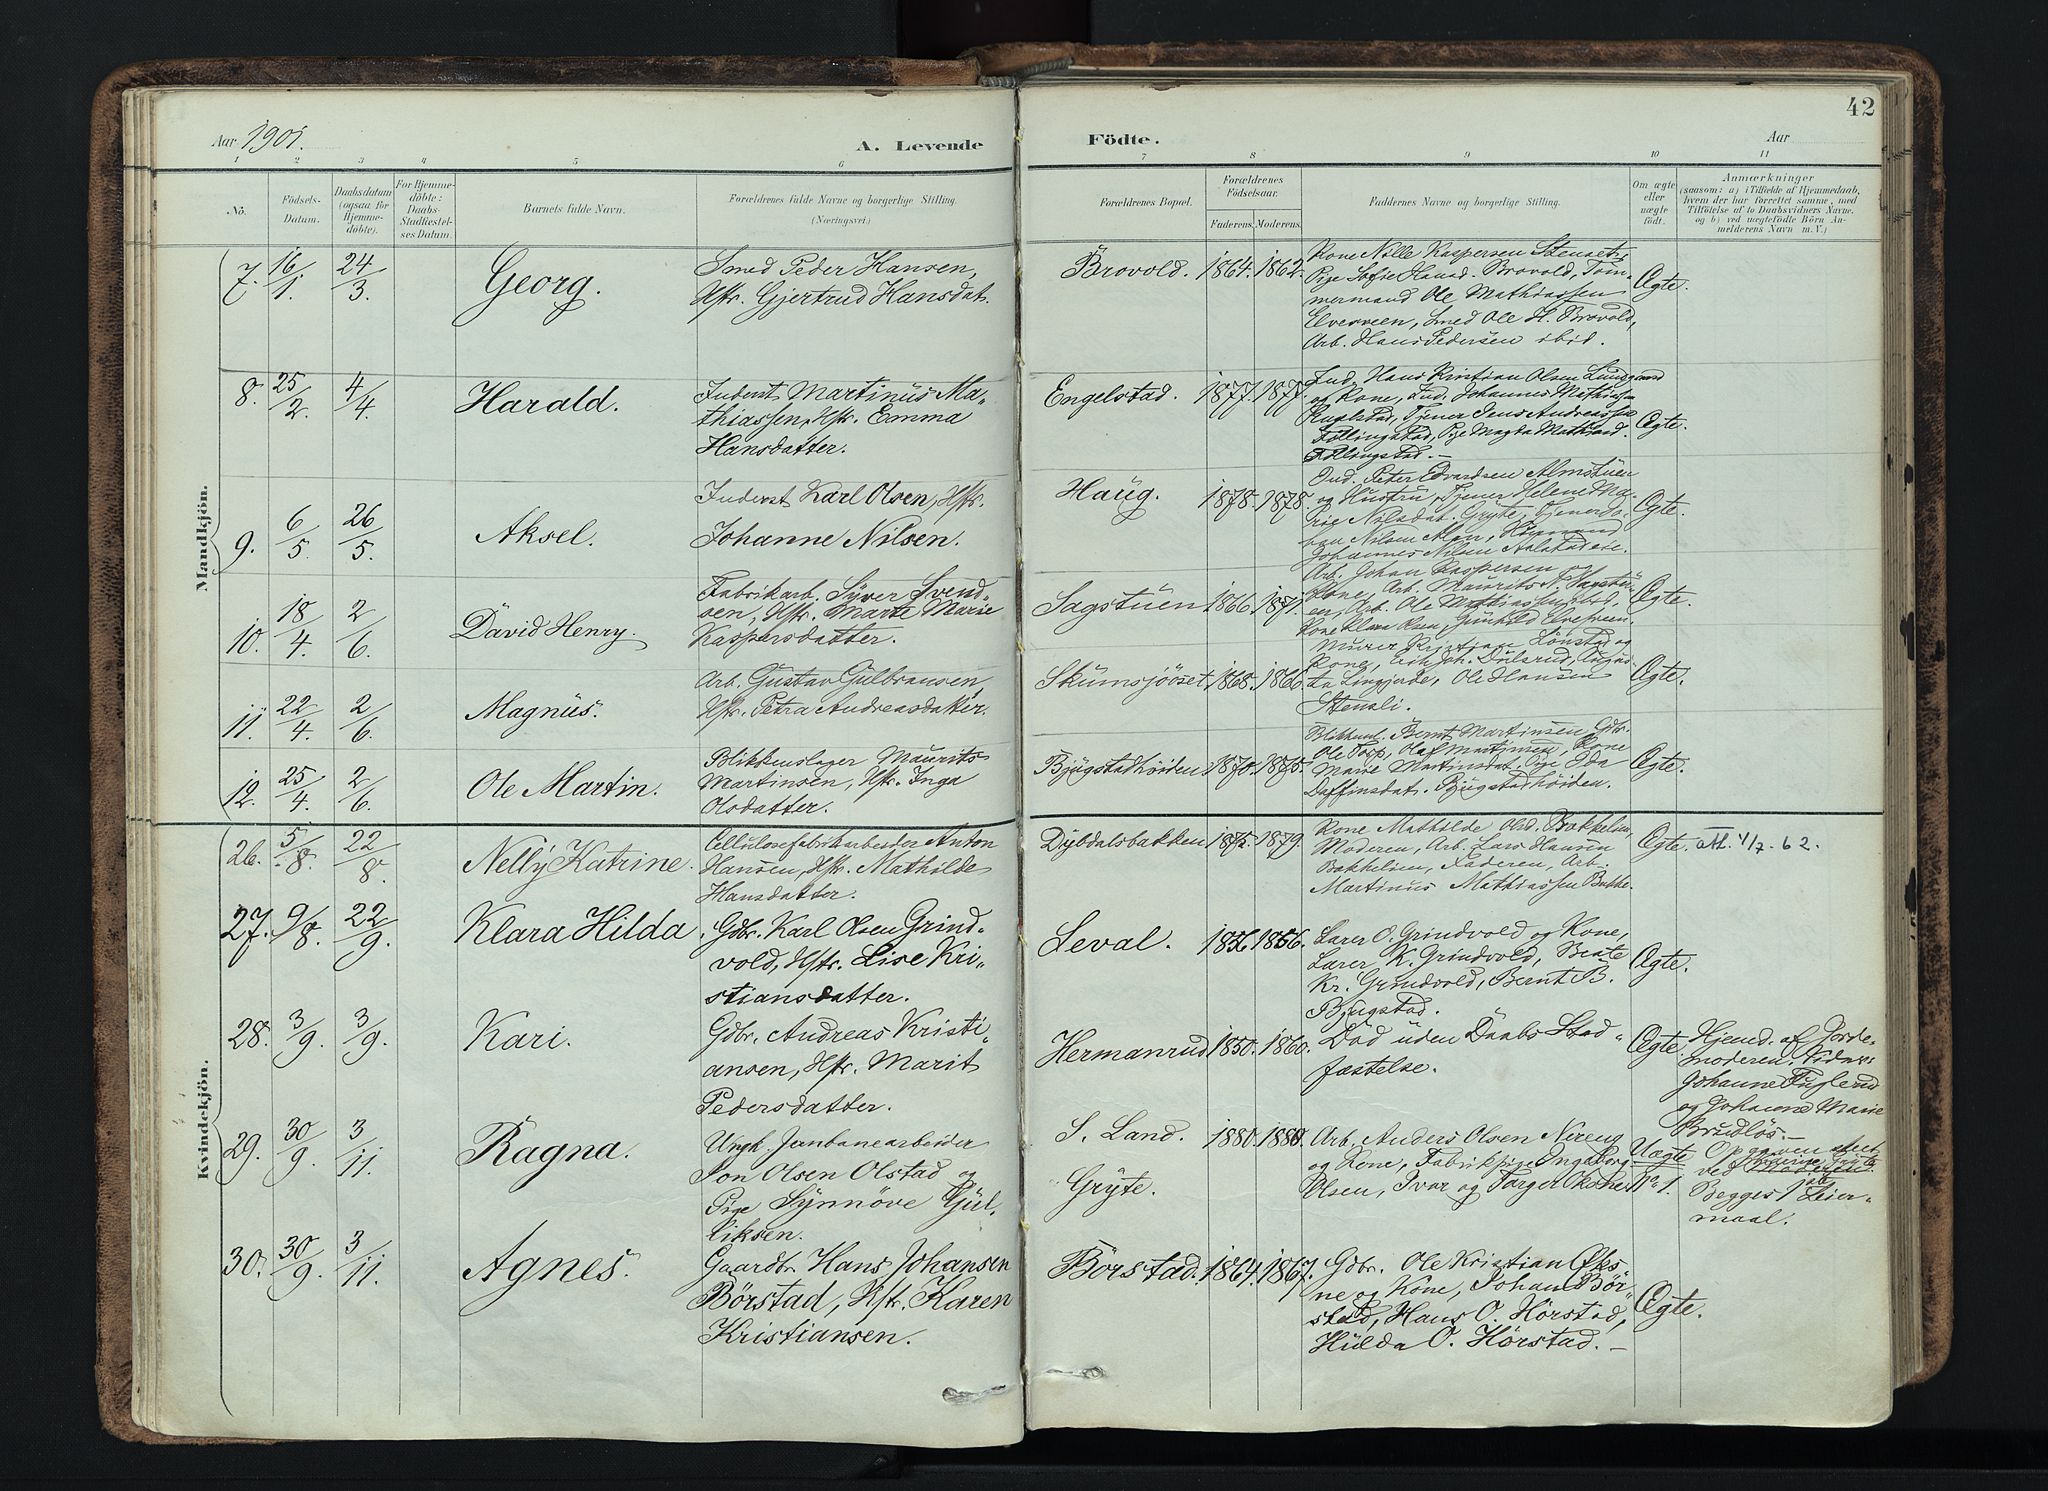 42
Aar 1901.
A. Levende Födte.
Aar
1 2 3 4 5 6 7 8 9 10 11
No.
Födsels-Datum.
Daabsdatum (ogsaa for Hjemmedöbte).
For Hjemmedöbte: Daabs-Stadfæstelses Datum.
Barnets fulde Navn.
Forældrenes fulde Navne og borgerlige Stilling.
(Næringsvei.)
Forældrenes Bopæl.
Forældrenes Födselsaar.
Faderens. Moderens.
Faddernes Navne og borgerlige Stilling.
Om ægte eller uægte födt.
Anmærkninger
(saasom: a) i Tilfælde af Hjemmedaab, hvem der har forrettet samme, med Tilföielse af to Daabsvidners Navne, og b) ved uægtefödte Börn Anmelderens Navn m. V.)
Mandkjön.
7. 16/1. 24/3. Georg.
Smed Peder Hansen,
Hstr. Gjertrud Hansdat.
Brovold. 1864. 1862.
Kone Nille Kaspersen Stenset,
Pige Sofie Hansd. Brovold, Tøm-
mermand Ole Mathiassen
Elvesveen, Smed Ole H. Brovold,
Arb. Hans Pedersen ibid.
Ægte.
8. 25/2. 4/4. Harald.
Inderst Martinus Ma-
thiassen, Hstr. Emma
Hansdatter.
Engelstad. 1877. 1877.
Ind. Hans Kristian Olsen
og Kone, Ind. Johannes Mathias
Tjener Jens Andreassen
Pige Magda Mathisd.
Ægte.
9. 6/5. 26/5. Aksel.
Inderst Karl Olsen, Hstr.
Johanne Nilsen.
Haug. 1878. 1878.
Ind. Peter Edvardsen Almstuen
og Hustru, Tjener Helene Ma-
rie Nilsdat. Gryte, Tjener Jo-
han Nilsen
Johannes Nilsen
Ægte.
10. 18/4. 2/6. David Henry.
Fabrikarb. Syver Svend-
sen, Hstr. Marte Marie
Kaspersdatter.
Sagstuen 1866. 1871.
Arb. Johan Kaspersen og
Kone, Arb. Maurits N. Sagstu-
en, Arb. Ole Mathiassen ibid,
Kone Klara Olsen, Gunhild Elvesveen.
Ægte.
11. 22/4. 2/6. Magnus.
Arb. Gustav Gulbransen,
Hstr. Petra Andreasdatter.
Skumsjöset 1868. 1866.
Murer Kristian Lönstad og
Kone, Erik Joh. Dulsrud, Augus-
ta Lingjerde, Ole Hansen
Stensli.
Ægte.
12. 25/4. 2/6. Ole Martin.
Blikkenslager Maurits
Martinsen, Hstr. Inga
Olsdatter.
Bjugstadhöiden 1870. 1875.
Blikkensl. Bernt Martinsen, Gdbr.
Ole Torp, Olaf Martinsen, Kone
Marie Martinsdat. Pige Ida
Daffinsdat. Bjugstadhöiden.
Ægte.
Kvindekjön.
26. 5/8. 22/8. Nelly Katrine.
Cellulosefabrikarbeider Anton
Hansen, Hstr. Mathilde
Hansdatter.
Dybdalsbakken 1872. 1879.
Kone Mathilde Olsd. Bakkelien,
Moderen, Arb. Lars Hansen
Bakkelien, Faderen, Arb.
Martinus Mathiassen Bakke.
Ægte. att. 4/7. 62.
27. 9/8. 22/9. Klara Hilda
Gdbr. Karl Olsen Grind-
vold, Hstr. Lise Kri-
stiansdatter.
Leval. 1856. 1856.
Larer O. Grindvold og Kone,
Larer K. Grindvold, Beate
Kr. Grindvold, Bernt B.
Bjugstad.
Ægte.
28. 3/9. 3/9. Kari.
Gdbr. Andreas Kristi-
ansen, Hstr. Marit
Pedersdatter.
Hermanrud 1850. 1860.
Död uden Daabs Stad-
fæstelse.
Ægte.
Hjemd. af Jorde-
moderen. Vidner:
Johanne Fuglerud
og Johanne Marie
Brudlös.
29. 30/9. 3/11. Ragna.
Ungk. Jernbanearbeider
Jon Olsen Olstad og
Pige Synnöve Gul-
liksen.
S. Land.
Gryte. 1880. 1880.
Arb. Anders Olsen Nereng
og Kone, Fabrikpige Ingeborg
Olsen, Ivar og Torger Skones
Uægte No. 1.
Opgaven
ved
Begges 1ste Leier-
maal.
30. 30/9. 3/11. Agnes.
Gaardbr. Hans Johansen
Börstad, Hstr. Karen
Kristiansen.
Börstad. 1864. 1867.
Gdbr. Ole Kristian Øks-
ne og Kone, Johan Bör-
stad, Hans O. Hörstad,
Hulda O. Hörstad.
Ægte.